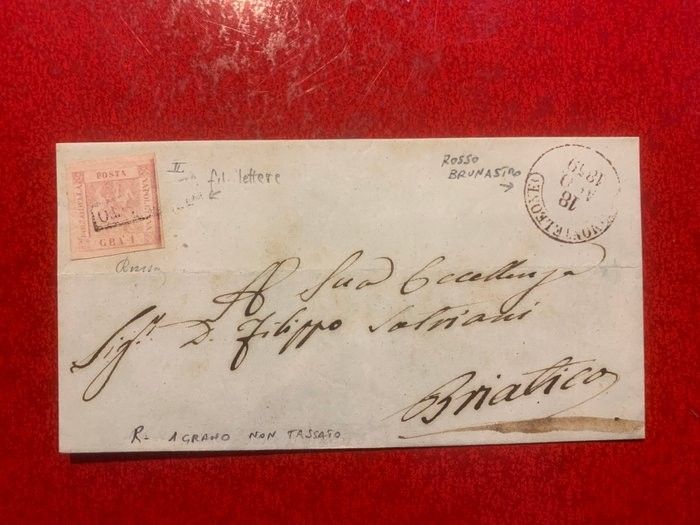 POSTA
NAPOLETANA
GRA 1
II
fil. lettere
ROSSO
BRUNASTRO
MONTELEONE
18
1859
A Sua Eccellenza
Sig.r D. Filippo Salviani
Briatico
R- 1 GRANO NON TASSATO